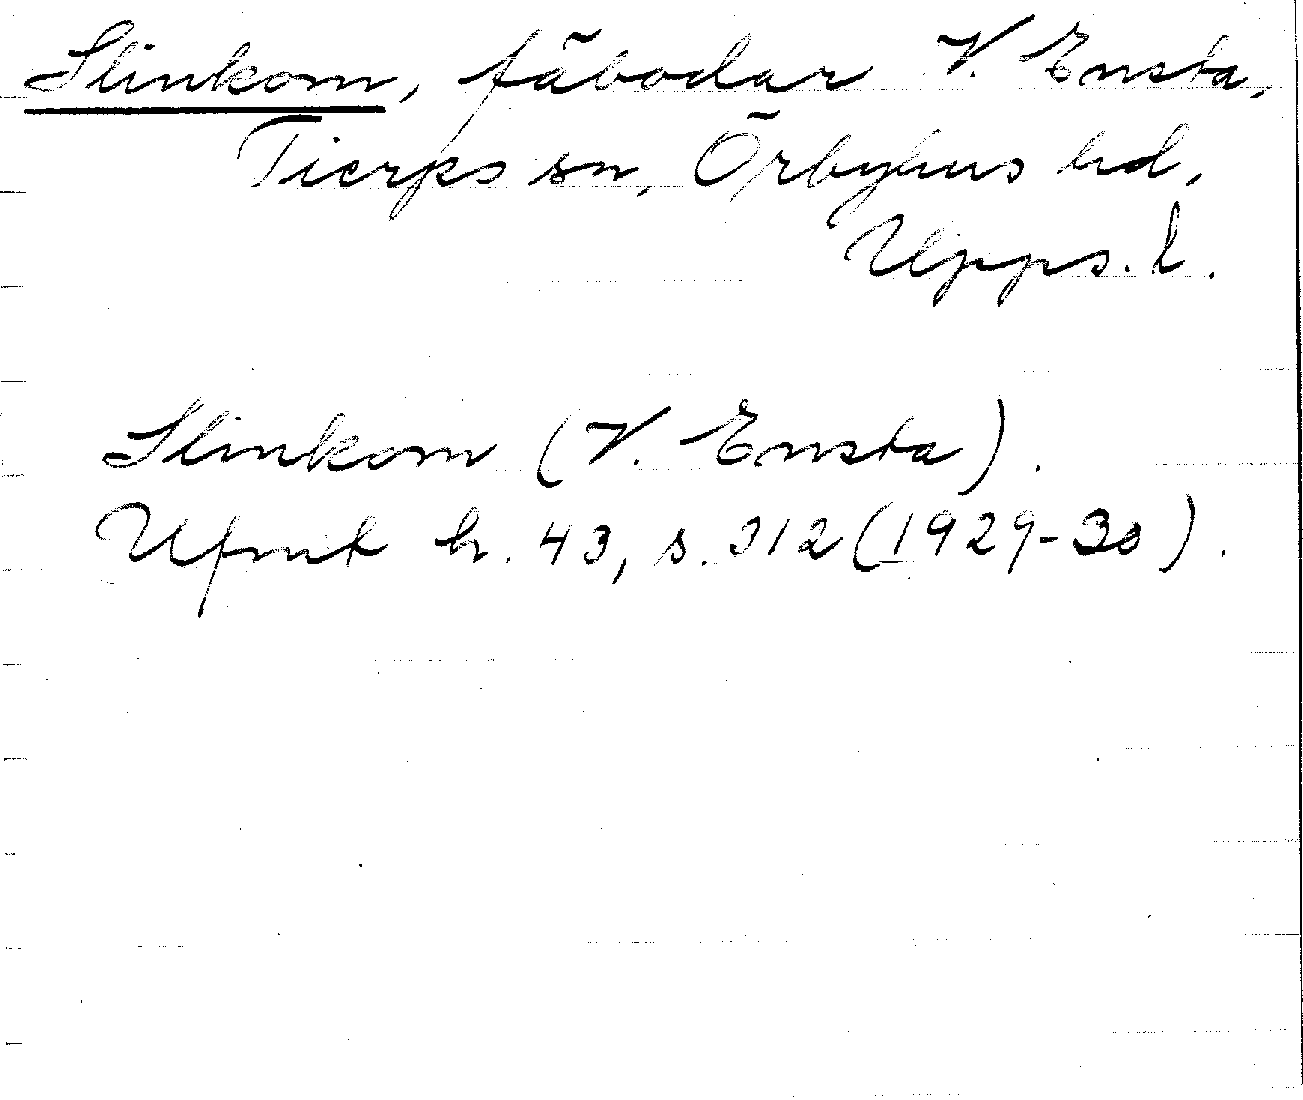 Slinkom, fäbodar V. Ensta,
Tierps sn, Örbyhus hd,
Upps. l.
Slinkom (V. Ensta).
Ufmt h. 43, s. 312 (1929-30).